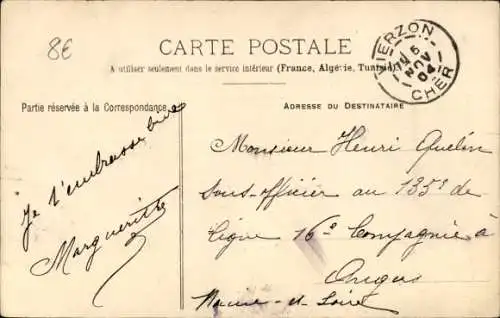 8€
CARTE POSTALE
A utiliser seulement dans le service intérieur (France, Algérie, Tunisie).
VIERZON
6
NOV
04
CHER
Partie réservée à la Correspondance
ADRESSE DU DESTINATAIRE
Je t'embrasse bien
Marguerite
Monsieur Henri Quélin
Sous-officier au 135e de
ligne 16e Compagnie à
Angers
Maine-et-Loire